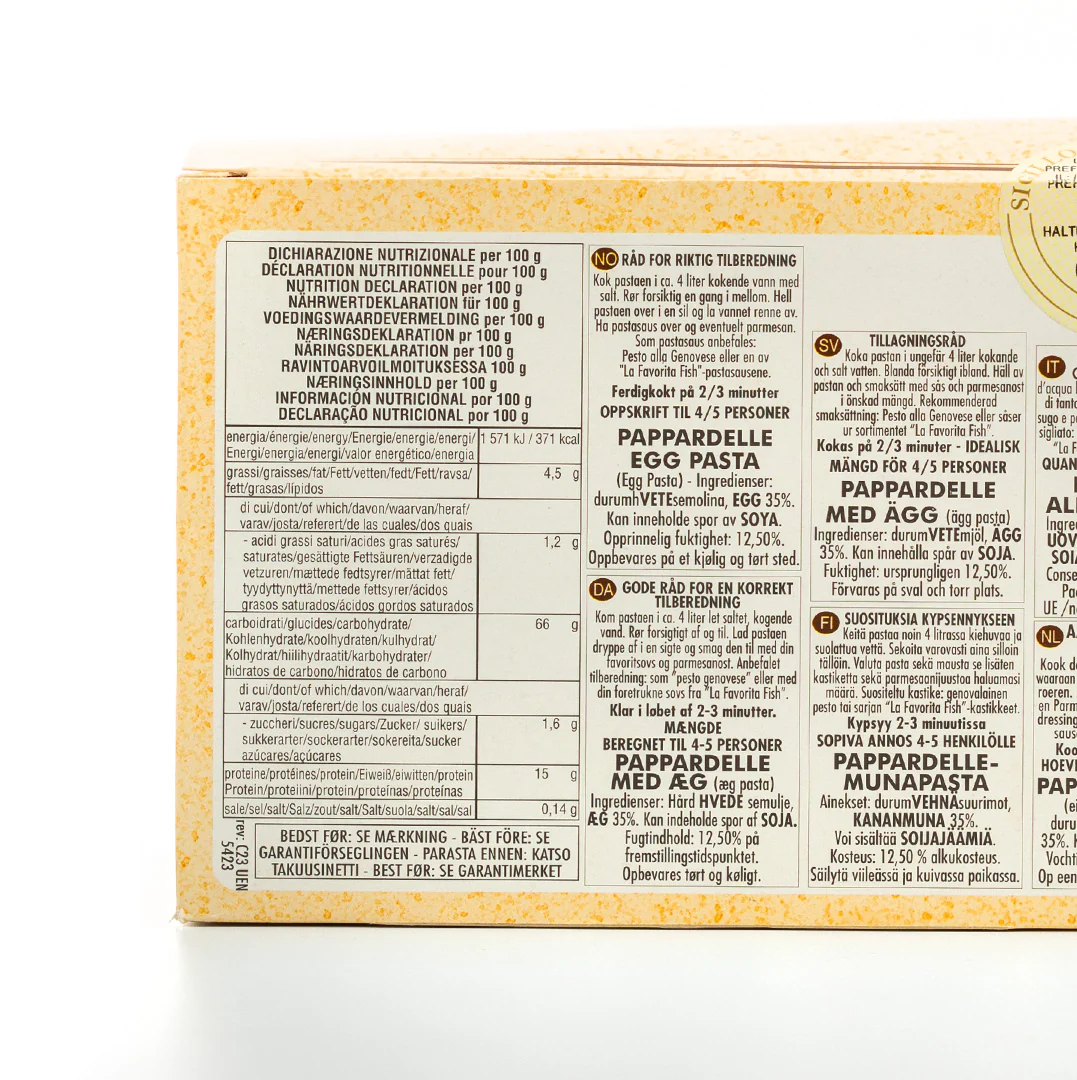 DICHIARAZIONE NUTRIZIONALE per 100 g
DÉCLARATION NUTRITIONNELLE pour 100 g
NUTRITION DECLARATION per 100 g
NÄHRWERTDEKLARATION für 100 g
VOEDINGSWAARDEVERMELDING per 100 g
NÆRINGSDEKLARATION pr 100 g
NÄRINGSDEKLARATION per 100 g
RAVINTOARVOILMOITUKSESSA 100 g
NÆRINGSINNHOLD per 100 g
INFORMACIÓN NUTRICIONAL por 100 g
DECLARAÇÃO NUTRICIONAL por 100 g
energia/énergie/energy/Energie/energie/energi/ 1 571 kJ / 371 kcal
Energi/energia/energi/valor energético/energia
grassi/graisses/fat/Fett/vetten/fedt/Fett/ravsa/ 4,5 g
fett/grasas/lípidos
di cui/dont/of which/davon/waarvan/heraf/
varav/josta/referert/de las cuales/dos quais
- acidi grassi saturi/acides gras saturés/ 1,2 g
saturates/gesättigte Fettsäuren/verzadigde
vetzuren/mættede fedtsyrer/mättat fett/
tyydyttynyttä/mettede fettsyrer/ácidos
grasos saturados/ácidos gordos saturados
carboidrati/glucides/carbohydrate/ 66 g
Kohlenhydrate/koolhydraten/kulhydrat/
Kolhydrat/hiilihydraatit/karbohydrater/
hidratos de carbono/hidratos de carbono
di cui/dont/of which/davon/waarvan/heraf/
varav/josta/referert/de los cuales/dos quais
- zuccheri/sucres/sugars/Zucker/ suikers/ 1,6 g
sukkerarter/sockerarter/sokereita/sucker
azúcares/açúcares
proteine/protéines/protein/Eiweiß/eiwitten/protein 15 g
Protein/proteiini/protein/proteínas/proteínas
sale/sel/salt/Salz/zout/salt/Salt/suola/salt/sal/sal 0,14 g
rev: C23 UEN
5423
BEDST FØR: SE MÆRKNING - BÄST FÖRE: SE
GARANTIFÖRSEGLINGEN - PARASTA ENNEN: KATSO
TAKUUSINETTI - BEST FØR: SE GARANTIMERKET
NO RÅD FOR RIKTIG TILBEREDNING
Kok pastaen i ca. 4 liter kokende vann med
salt. Rør forsiktig en gang i mellom. Hell
pastaen over i en sil og la vannet renne av.
Ha pastasaus over og eventuelt parmesan.
Som pastasaus anbefales:
Pesto alla Genovese eller en av
"La Favorita Fish"-pastasausene.
Ferdigkokt på 2/3 minutter
OPPSKRIFT TIL 4/5 PERSONER
PAPPARDELLE
EGG PASTA
(Egg Pasta) - Ingredienser:
durumhVETEsemolina, EGG 35%.
Kan inneholde spor av SOYA.
Opprinnelig fuktighet: 12,50%.
Oppbevares på et kjølig og tørt sted.
DA GODE RÅD FOR EN KORREKT
TILBEREDNING
Kom pastaen i ca. 4 liter let saltet, kogende
vand. Rør forsigtigt af og til. Lad pastaen
dryppe af i en sigte og smag den til med din
favoritsovs og parmesanost. Anbefalet
tilberedning: som "pesto genovese" eller med
din foretrukne sovs fra "La Favorita Fish".
Klar i løbet af 2-3 minutter.
MÆNGDE
BEREGNET TIL 4-5 PERSONER
PAPPARDELLE
MED ÆG (æg pasta)
Ingredienser: Hård HVEDE semulje,
ÆG 35%. Kan indeholde spor af SOJA.
Fugtindhold: 12,50% på
fremstillingstidspunktet.
Opbevares tørt og køligt.
SV TILLAGNINGSRÅD
Koka pastan i ungefär 4 liter kokande
och salt vatten. Blanda försiktigt ibland. Häll av
pastan och smaksätt med sås och parmesanost
i önskad mängd. Rekommenderad
smaksättning: Pesto alla Genovese eller såser
ur sortimentet "La Favorita Fish".
Kokas på 2/3 minuter - IDEALISK
MÄNGD FÖR 4/5 PERSONER
PAPPARDELLE
MED ÄGG (ägg pasta)
Ingredienser: durumVETEmjöl, ÄGG
35%. Kan innehålla spår av SOJA.
Fuktighet: ursprungligen 12,50%.
Förvaras på sval och torr plats.
FI SUOSITUKSIA KYPSENNYKSEEN
Keitä pastaa noin 4 litrassa kiehuvaa ja
suolattua vettä. Sekoita varovasti aina silloin
tällöin. Valuta pasta sekä mausta se lisäten
kastiketta sekä parmesaanijuustoa haluamasi
määrä. Suositeltu kastike: genovalainen
pesto tai sarjan "La Favorita Fish"-kastikkeet.
Kypsyy 2-3 minuutissa
SOPIVA ANNOS 4-5 HENKILÖLLE
PAPPARDELLE-
MUNAPASTA
Ainekset: durumVEHNÄsuurimot,
KANANMUNA 35%.
Voi sisältää SOIJAJÄÄMIÄ.
Kosteus: 12,50 % alkukosteus.
Säilytä viileässä ja kuivassa paikassa.
IT
d'acqua
di tanto
sugo e
sigliato:
"La F
QUAN
AL
Ingre
UOV
SOI
Conse
UE /n
NL
Kook
waaraan
roeren.
en Parm
dressing
saus
Koo
HOEV
PAP
(ei
duru
35%.
Vochti
Op een
SIGILLO
HALT